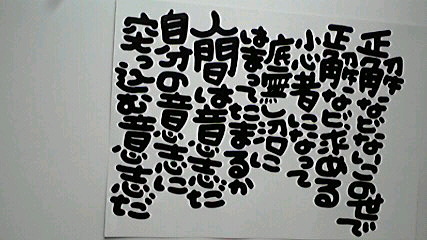 正解などないこの世で
正解など求める
小心者になって
底無し沼に
はまってたまるか
人間は意志だ
自分の意志に
突っ込む意志だ